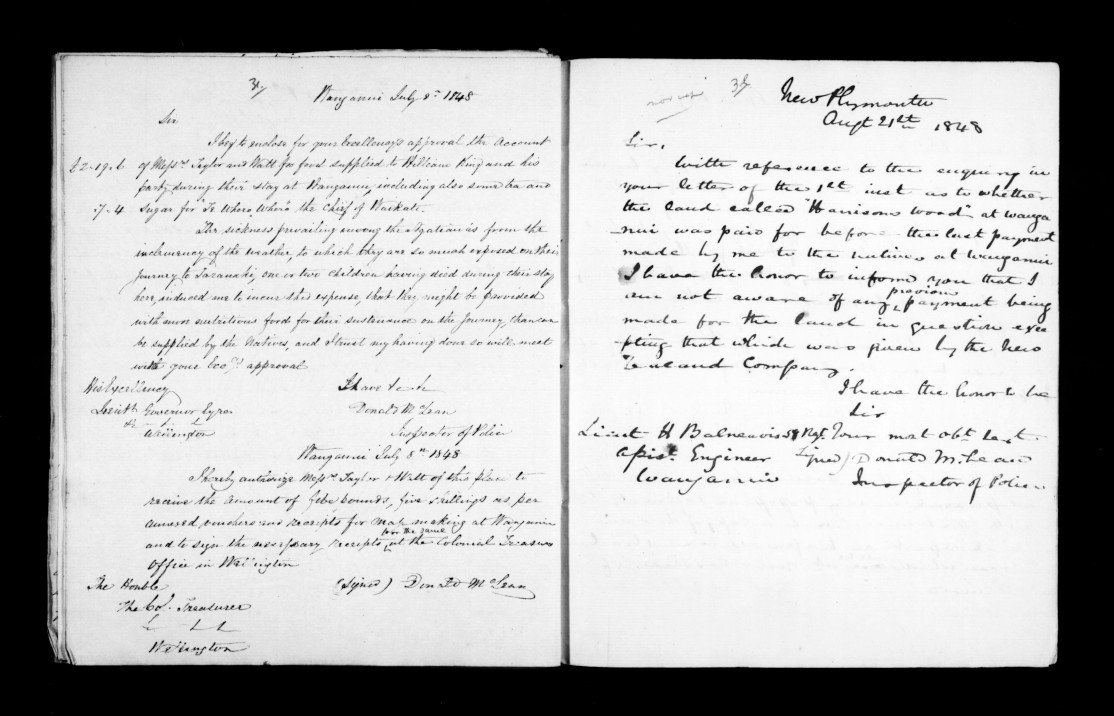 31/
Wanganui July 8th 1848
Sir
I beg to enclose for your Excellency's approval the Account
£2-19.6 of Messrs Taylor and Watt for food supplied to William King and his
party during their stay at Wanganui, including also some tea and
.7.4 Sugar for "Te Whero Whero" the Chief of Waikato.
The sickness prevailing among the Ngatiawas from the
inclemency of the weather, to which they are so much exposed on their
Journey to Taranaki, one or two children having died during their stay
here, induced me to incur this expense, that they might be provided
with more nutritious food for their sustenance on the Journey, than can
be supplied by the Natives, and I trust my having done so will meet
with your Excys approval
His Excellency I have &c &c
Lieut Governor Eyre Donald McLean
&c Inspector of Police
Wellington
Wanganui July 8th 1848
I hereby authorize Messrs Taylor & Watt of this place to
receive the amount of five pounds, five shillings as per
annexed vouchers and receipts for map making at Wanganui
for the same
and to sign the necessary receipts at the Colonial Treasurers
Office in Wellington
The Honble (Signed) Donald McLean
The Col. Treasurer
&c &c &c
Wellington
32/
New Plymouth
Augt 21th 1848
Sir,
With reference to the enquiry in
your letter of the 1st inst as to whether
the land called "Harrisons wood" at Wanga
-nui was paid for before the last payment
made by me to the natives at Wanganui
I have the honor to inform you that I
previous
am not aware of any payment being
made for the land in question exce
-pting that which was given by the New
Zealand Company.
I have the honor to be
Sir
Lieut H Balneavis 58 Rgt. Your most obt sert
Assist. Engineer Signed) Donald McLean
Wanganui Inspector of Police